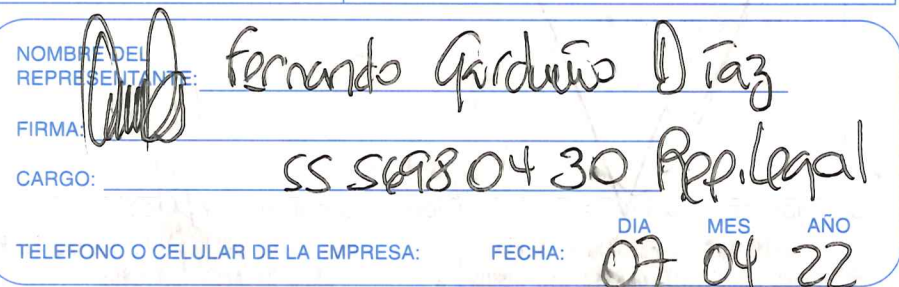 NOMBRE DEL
REPRESENTANTE: Fernando Garduño Díaz
FIRMA:
CARGO: 55 5698 04 30 Rep. Legal
DIA MES AÑO
TELEFONO O CELULAR DE LA EMPRESA: FECHA: 07 04 22